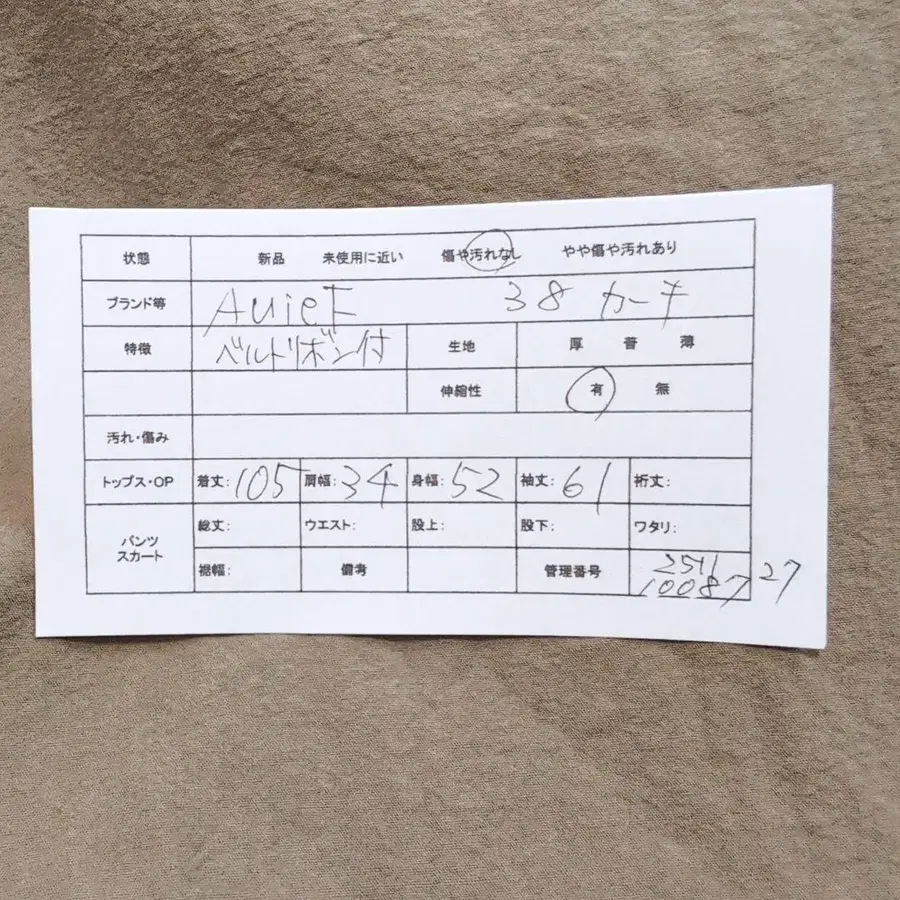 状態 新品 未使用に近い 傷や汚れなし やや傷や汚れあり
ブランド等 AuieF 38 カーキ
特徴 ベルトリボン付 生地 厚 普 薄
伸縮性 有 無
汚れ・傷み
トップス・OP 着丈:105 肩幅:34 身幅:52 袖丈:61 裄丈:
パンツ スカート 総丈: ウエスト: 股上: 股下: ワタリ:
裾幅: 備考 管理番号 2511
10087 27